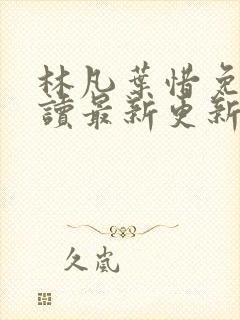 林凡葉惜免
讀最新更新
久嵐